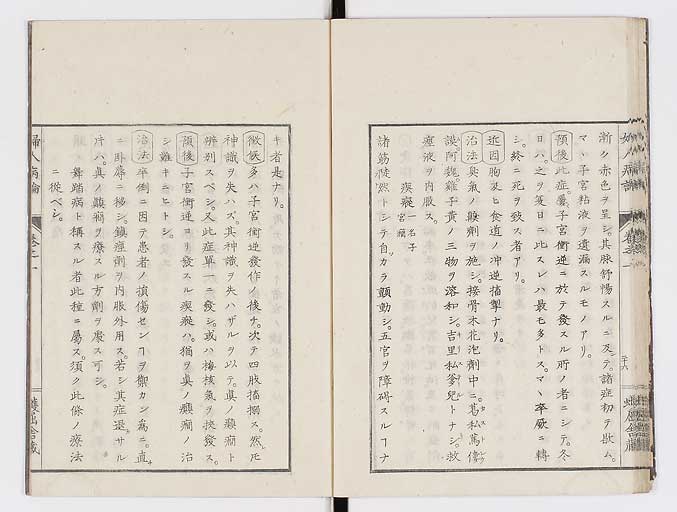 漸ク赤色ヲ呈シ。其脉舒暢スルニ及テ。諸症初テ歇ム。
マヽ子宮粘液ヲ遺漏スルモノアリ。
預後此症。屡子宮衝逆ニ於テ發スル所ノ者ニシテ。冬
日ハ。之ヲ夏日ニ比スレハ最モ多トス。マヽ卒厥ニ轉
シ。終ニ死ヲ致ス者アリ。
近因胸及ヒ食道ノ冲逆搐掣ナリ。
治法臭氣ノ皷劑ヲ施シ。接骨木花泡劑中ニ。葛私篤僂
謨。阿魏。雞子黄ノ三物ヲ溶和シ。吉里私爹兒トナシ。救
痙液ヲ内服ス。
痰癡 一名子宮癇
諸筋忽然トシテ自カラ顫動シ。五官ヲ障碍スルヿナ
キ者是ナリ。
徴候多ハ子宮衝逆發作ノ後チ。次テ四肢搐搦ス。然𪜈
神識ヲ失ハズ。其神識ヲ失ハザルヲ以テ。真ノ癲癇ト
辨别スベシ。又此症單一ニ發シ。或ハ梅核氣ヲ挾發ス。
預後子宮衝逆ヨリ發スル痰癡ハ。猶ヲ真ノ癲癇ノ治
シ難キニヒトシ。
治法卒倒ニ因テ患者ノ損傷センヿヲ禦カン爲ニ。直
ニ卧蓐ニ移シ。鎮痙劑ヲ内服外用ス。若シ其症退サル
片ハ。真ノ癲癇ヲ療スル方劑ヲ處ス可シ。
舞踏病ト稱スル者此種ニ屬ス。須ク此條ノ療法
ニ從ベシ。
婦人病論
卷之一